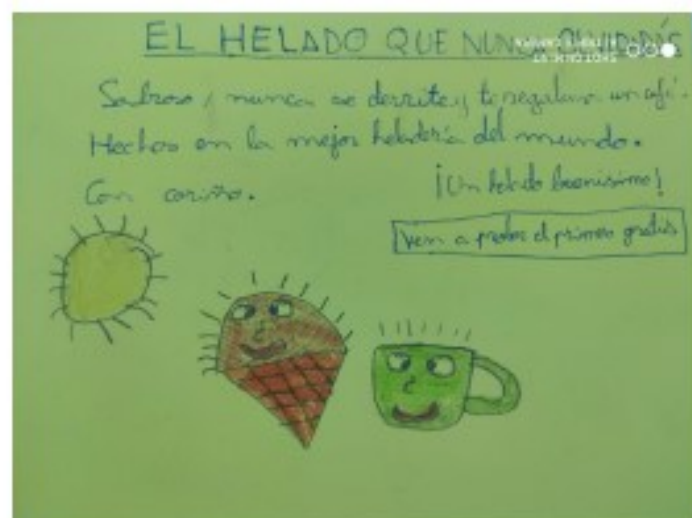 EL HELADO QUE NUNCA OLVIDARÁS
Sabroso, nunca se derrite y te regalan un café.
Hechos en la mejor heladería del mundo.
Con cariño. ¡Un helado buenísimo!
Ven a probar el primero gratis